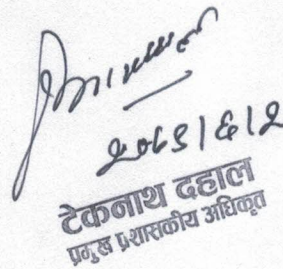 २०७९।६।२
टेकनाथ दहाल
प्रमुख प्रशासकीय अधिकृत